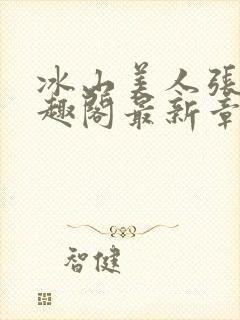 冰山美人張
趣閣最新章
智健